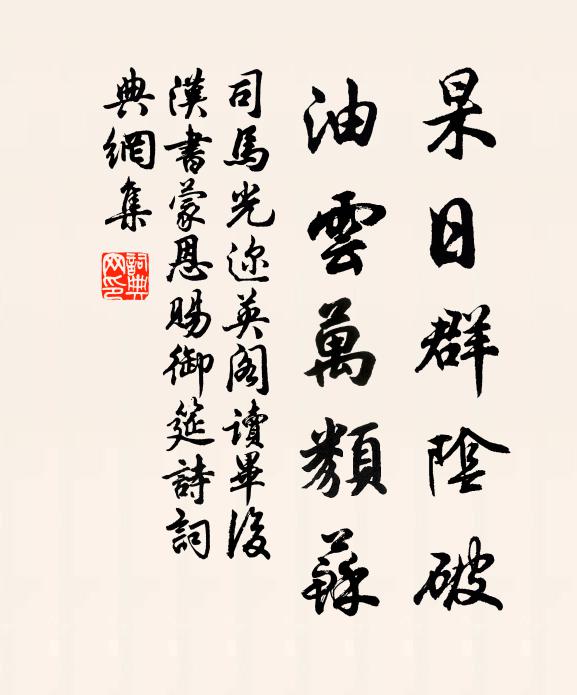 杲日群陰破
油雲萬類蘇
司馬光邇英閣讀畢後
漢書蒙恩賜御筵詩詞
典網集
詞典網印